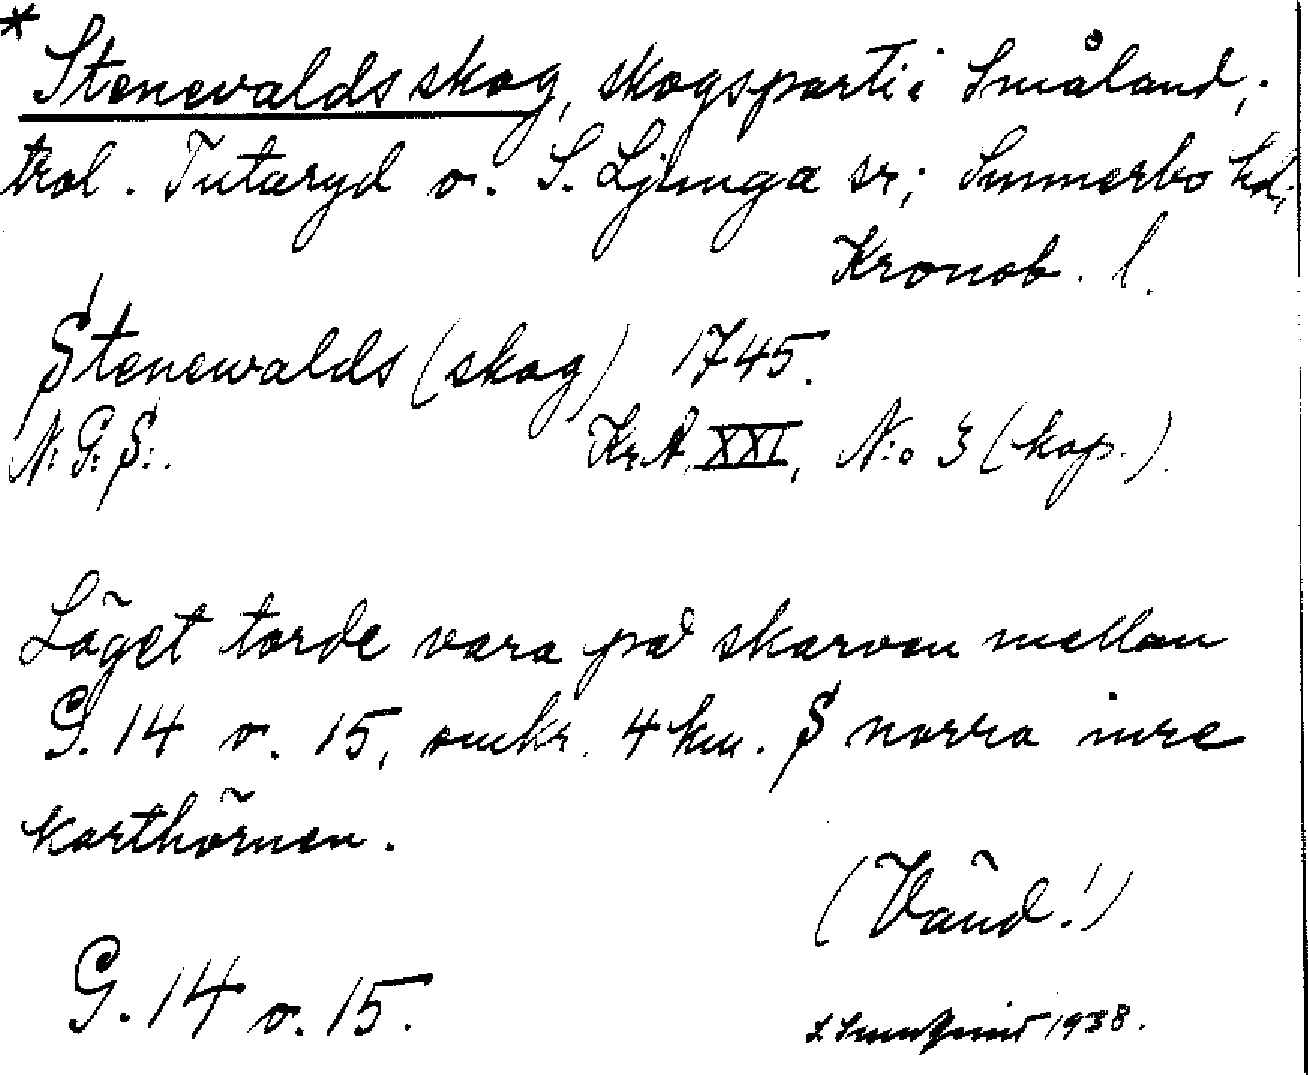 * Stenevalds skog, skogsparti i Småland;
trol. Tutaryd o. S. Ljunga sr; Sunnerbo hd;
Kronob. l.
Stenewalds (skog) 1745.
N: G: S:. Kr. A. XXI, N:o 3 (kop.).
Läget torde vara på skarven mellan
G. 14 o. 15, omkr. 4 km. S norra inre
karthörnen.
(Vänd!)
G. 14 o. 15.
1938.